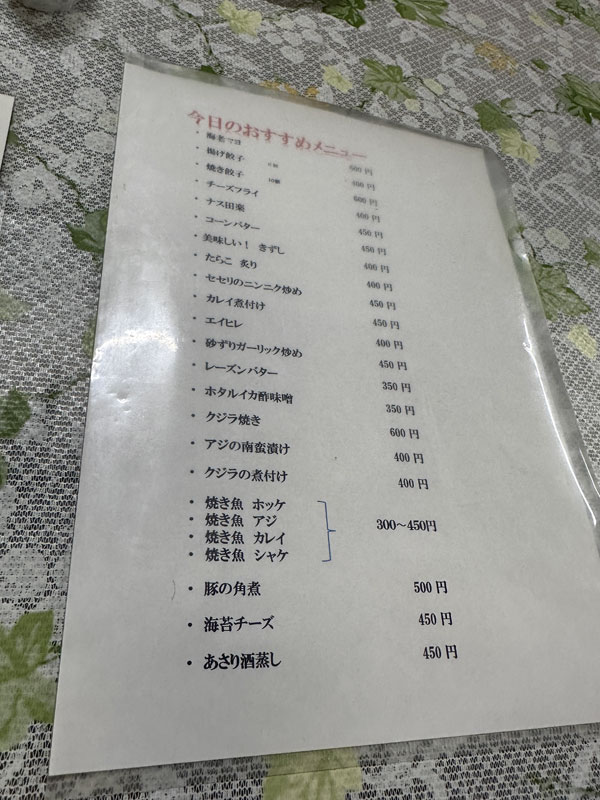 今日のおすすめメニュー
・海老マヨ 500円
・揚げ餃子 400円
・焼き餃子 10個 600円
・チーズフライ 400円
・ナス田楽 450円
・コーンバター 450円
・美味しい！ きずし 400円
・たらこ 炙り 400円
・セセリのニンニク炒め 450円
・カレイ煮付け 450円
・エイヒレ 400円
・砂ずりガーリック炒め 450円
・レーズンバター 350円
・ホタルイカ酢味噌 350円
・クジラ焼き 600円
・アジの南蛮漬け 400円
・クジラの煮付け 400円
・焼き魚 ホッケ
・焼き魚 アジ
・焼き魚 カレイ
・焼き魚 シャケ
300～450円
・豚の角煮 500円
・海苔チーズ 450円
・あさり酒蒸し 450円